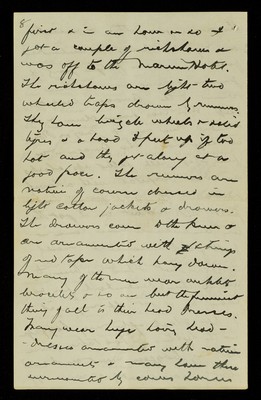 8
first & in an hour or so I
got a couple of rickshaws &
was off to the Marine Hotel.
The rickshaws are light two
wheeled traps drawn by runners.
They have bicycle wheels & solid
tyres & a hood to put up if too
hot and they go along at a
good pace. The runners are
natives of course dressed in
light cotton jackets & drawers.
The drawers come to the knee &
are ornamented with strings
of red tape which hang down.
Many of the men wear anklets
bracelets & so on but the funniest
thing of all is their head dresses.
Many wear huge head-
-dresses ornamented with native
ornaments & many have these
surmounted by cows horns